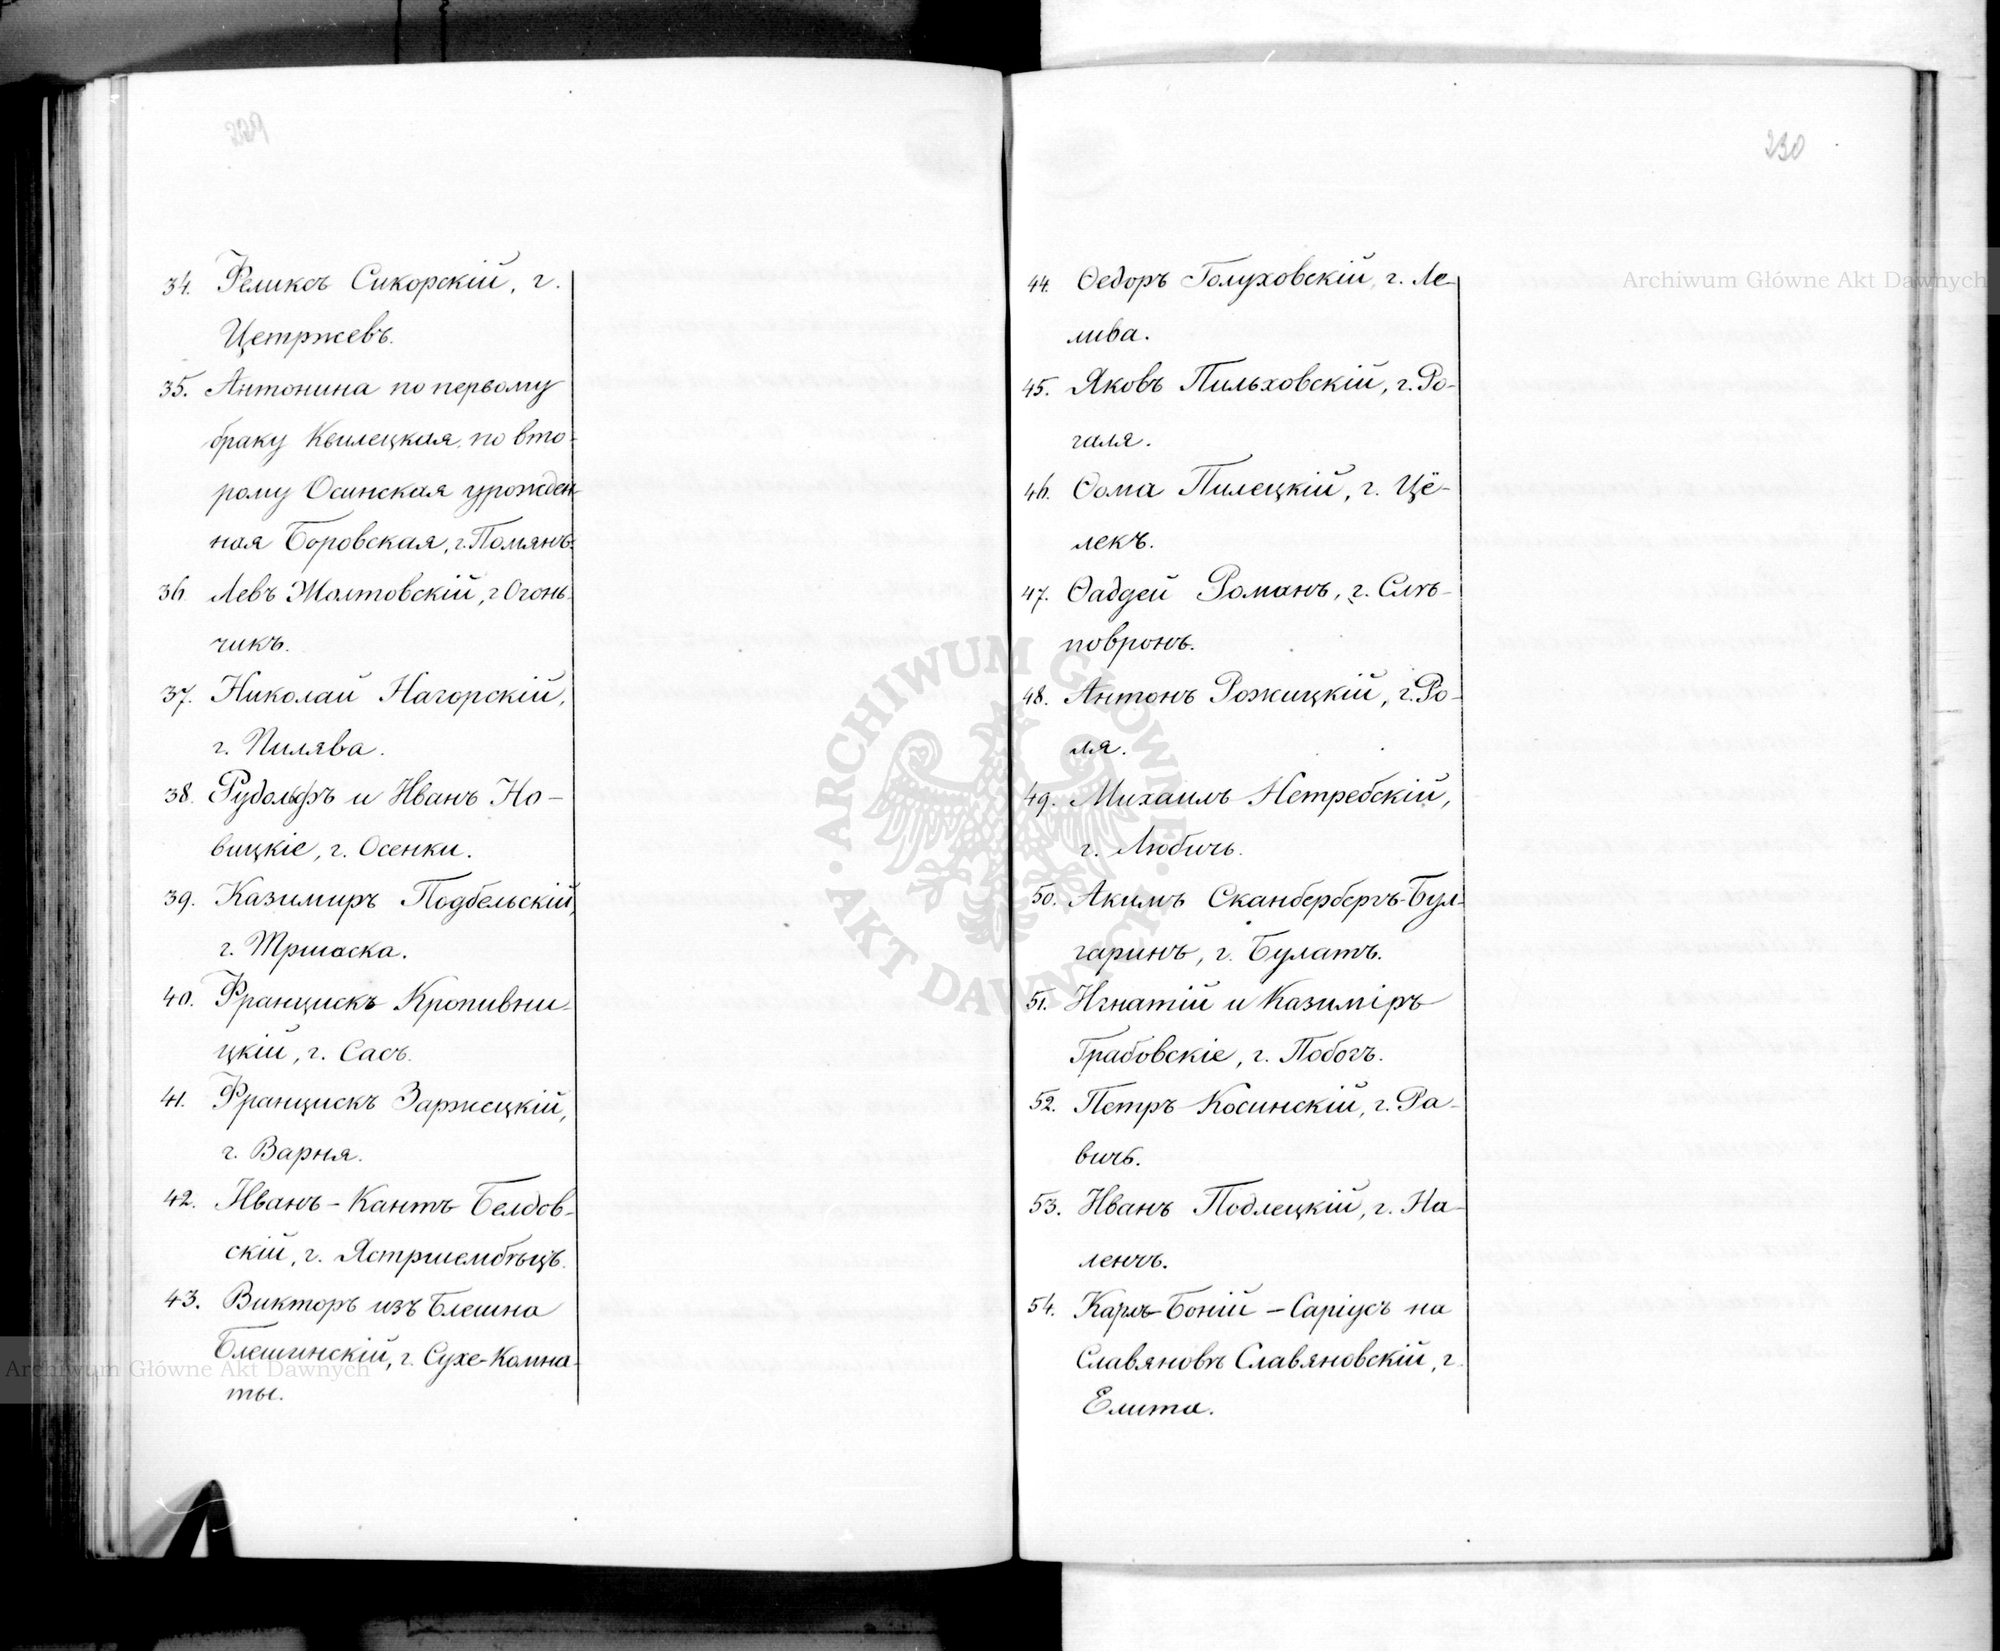 34. Феликсъ Сикорскій, г.
Цетржевъ.
35. Антонина по первому
браку Квилецкая, по вто-
рому Осинская урожден-
ная Боровская, г. Помянъ.
36. Левъ Жолтовскій, г. Огонь-
чикъ.
37. Николай Нагорскій,
г. Пилява.
38. Рудольфъ и Иванъ Но-
вицкіе, г. Осенки.
39. Казимиръ Подбельскій,
г. Тршаска.
40. Францискъ Кропивни-
цкій, г. Сасъ.
41. Францискъ Заржецкій,
г. Варня.
42. Иванъ-Кантъ Белдов-
скій, г. Ястршембѣцъ.
43. Викторъ изъ Блешна
Блешинскій, г. Сухе-Комна-
ты.
230
44. Ѳедоръ Голуховскій, г. Ле-
лива.
45. Яковъ Пильховскій, г. Ро-
галя.
46. Ѳома Пилецкій, г. Цё-
лекъ.
47. Ѳаддей Романъ, г. Слѣ-
повронъ.
48. Антонъ Рожицкій, г. Ро-
ля.
49. Михаилъ Нетребскій,
г. Любичъ.
50. Акимъ Сканбербергъ-Бул-
гаринъ, г. Булатъ.
51. Игнатій и Казиміръ
Грабовскіе, г. Побогъ.
52. Петръ Косинскій, г. Ра-
вичъ.
53. Иванъ Подлецкій, г. На-
ленчъ.
54. Карлъ-Боній-Саріусъ на
Славяновѣ Славяновскій, г.
Елита.
Archiwum Główne Akt Dawnych
Archiwum Główne Akt Dawnych
ARCHIWUM GŁÓWNE AKT DAWNYCH